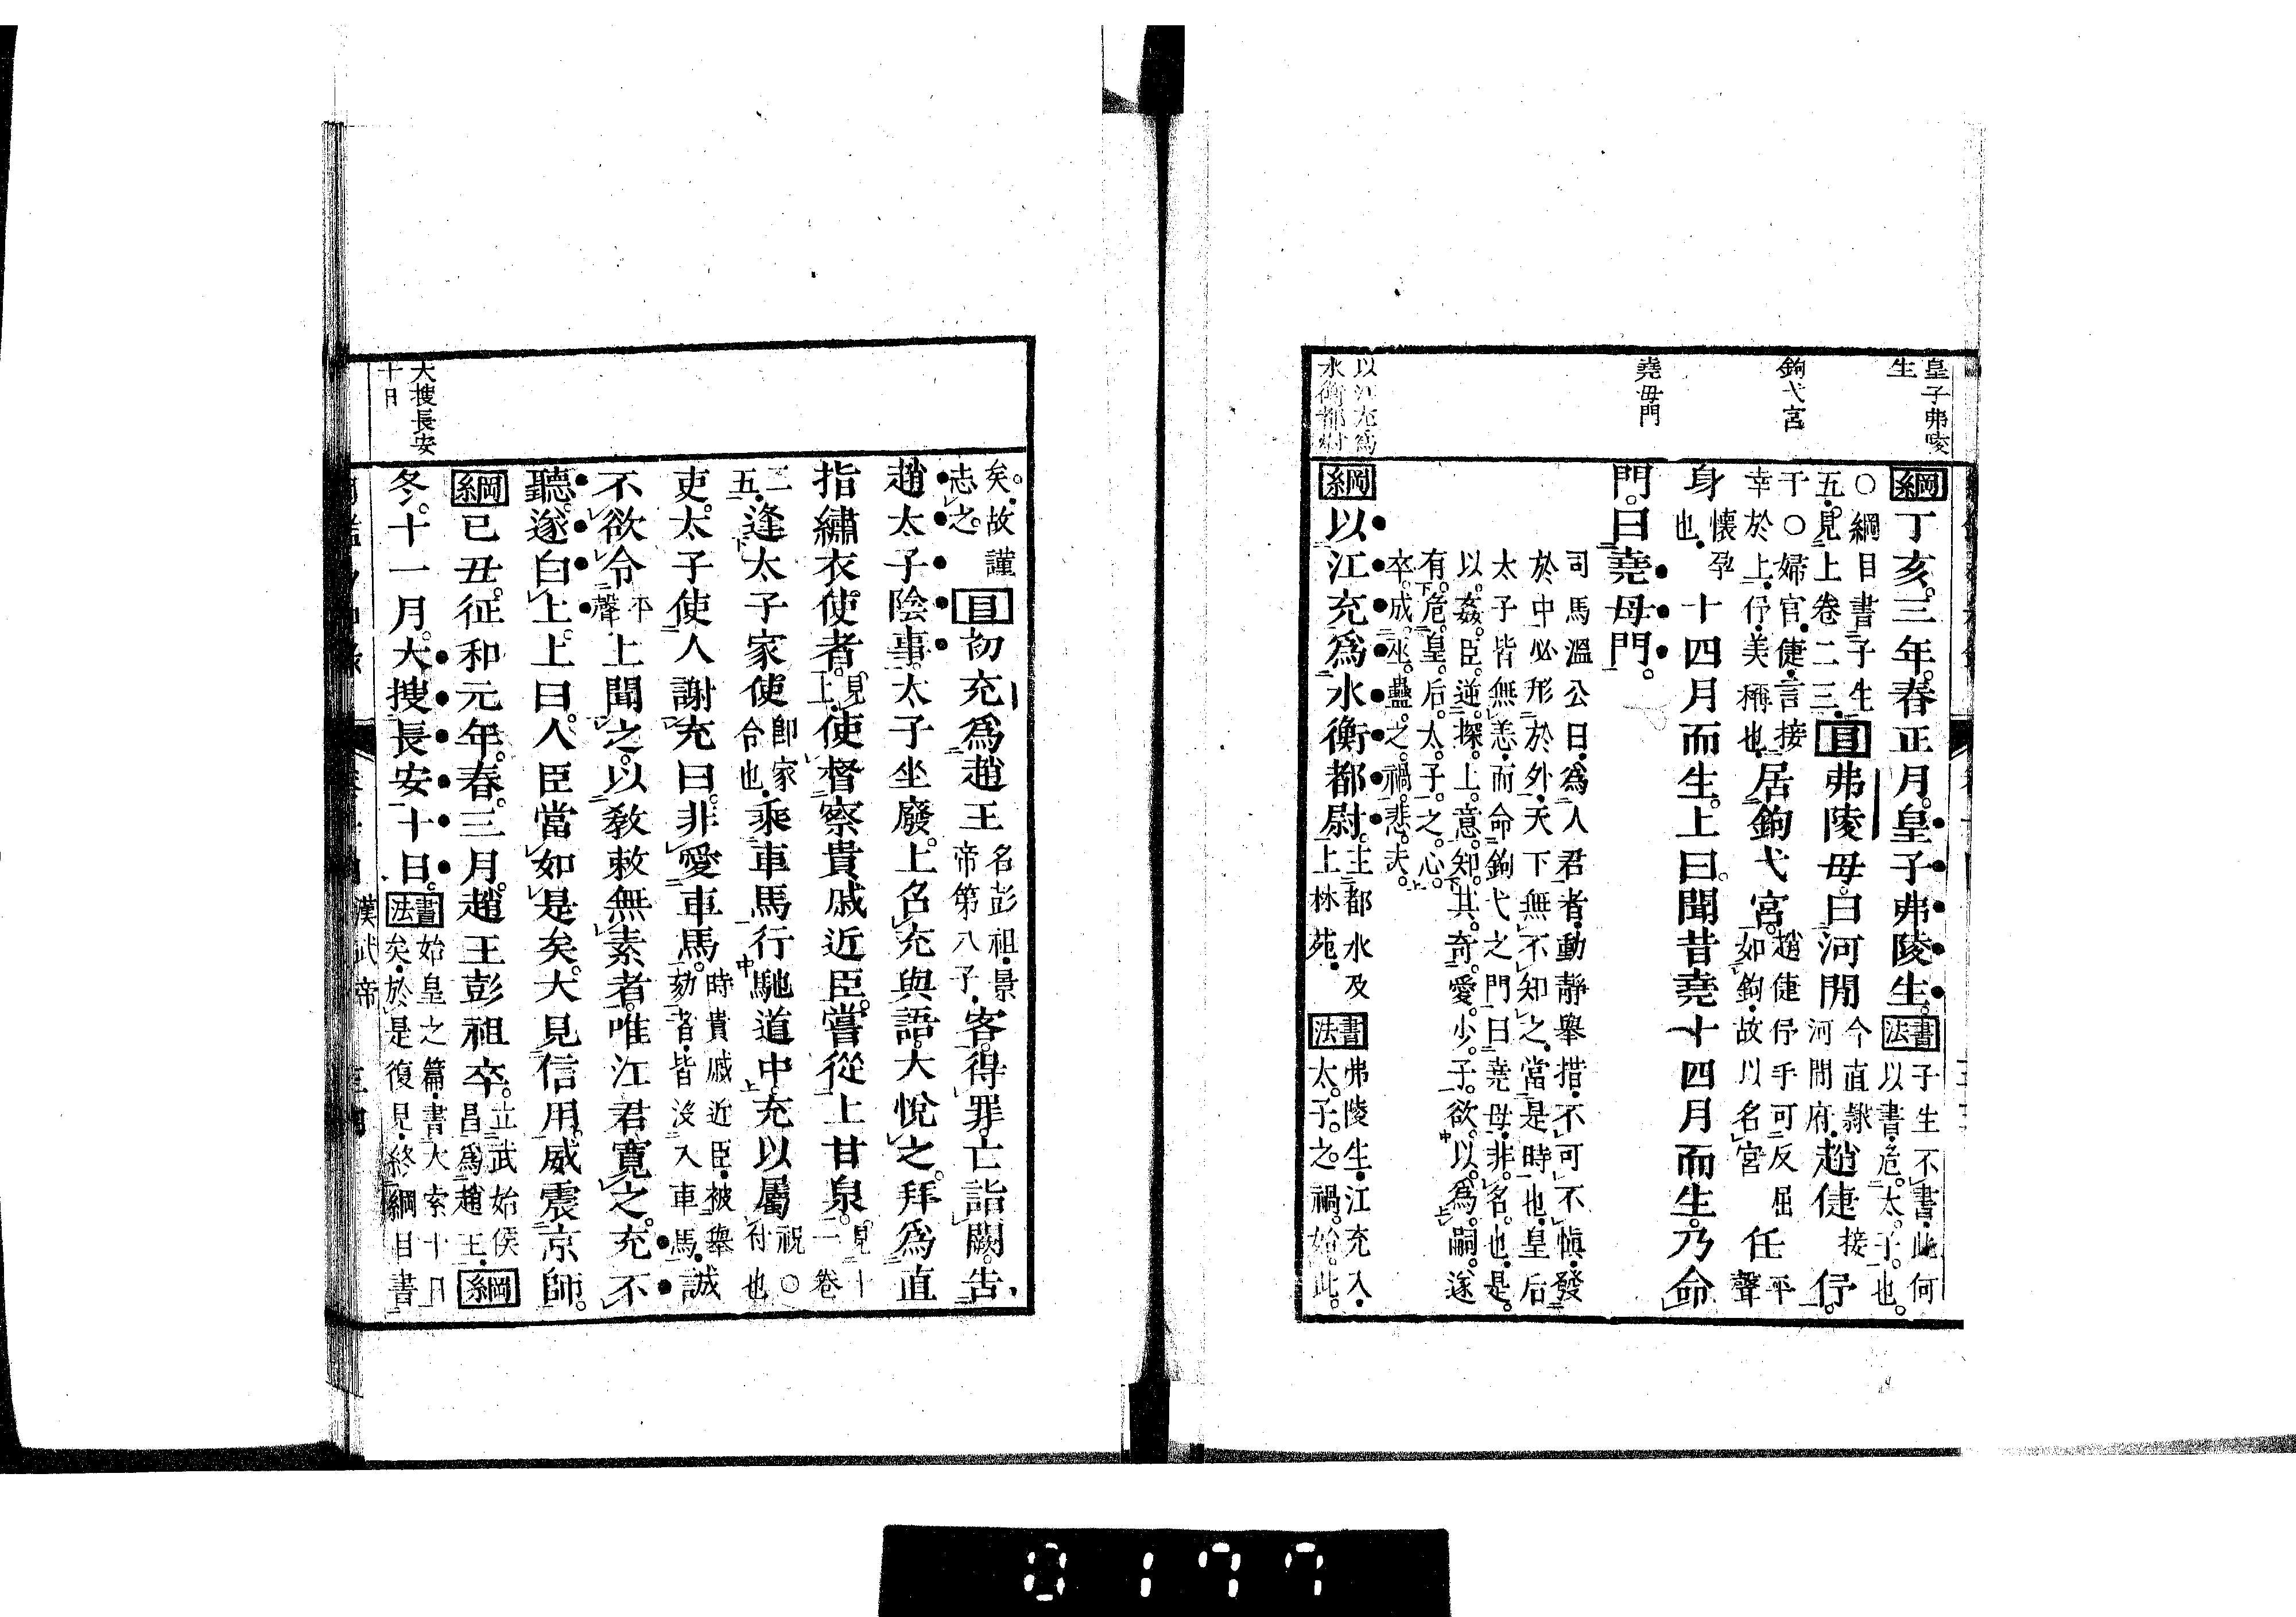 皇子弗陵
生
鉤弋宮
堯母門
以江充爲
水衡都尉
綱丁亥。三年。春正月。皇子弗陵生。書法子生不書。此何
以書。危太子也。
○綱目書子生
五。見上卷二三。目弗陵母。曰河間今直隸
河間府。趙倢接伃。
于○婦官。倢。言接
幸於上。伃。美稱也。居鉤弋宮。趙倢伃手可反屈
如鉤。故以名宮任平
聲
身懷孕
也。十四月而生。上曰。聞昔堯十四月而生。乃命
門。曰堯母門。
司馬溫公曰。爲人君者。動靜舉措。不可不愼。發
於中必形於外。天下無不知之。當是時也。皇后
太子皆無恙。而命鉤弋之門曰堯母。非名也。是
以。姦。臣。逆。探。上。意。知。其。奇。愛。少。子。欲。以。爲。嗣。遂
有。危。皇。后。太。子。之。心。
卒。成。巫。蠱。之。禍。悲。夫。
綱以江充爲水衡都尉。主都水及
上林苑。書法弗陵生。江充入。
太。子。之。禍。始。此。
大搜長安
十日
矣。故謹
志之。目初充爲趙王名彭祖。景
帝第八子。客。得罪。亡詣闕。告
趙太子陰事。太子坐廢。上召充與語。大悅之。拜爲直
指繡衣使者。見
上。使督察貴戚近臣。嘗從上甘泉。見十
一卷
二
五。逢太子家使卽家
令也。乘車馬行馳道中。充以屬祝○
付也
吏。太子使人謝充曰。非愛車馬。時貴戚近臣。被舉
劾者。皆沒入車馬。誠
不欲令平
聲。上聞之。以敎敕無素者。唯江君寬之。充不
聽。遂白上。上曰。人臣當如是矣。大見信用。威震京師。
綱己丑。征和元年。春。三月。趙王彭祖卒。立武始侯
昌爲趙王。綱
冬。十一月。大搜長安十日。書法始皇之篇。書大索十日
矣。於是復見。終綱目書
漢武帝
3177